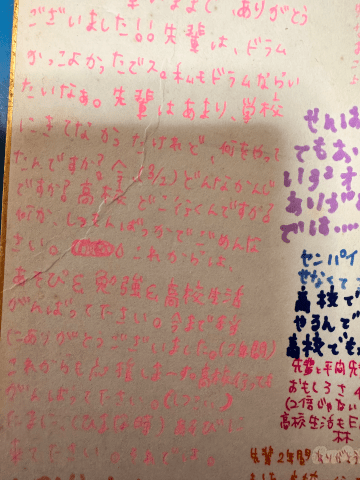 ありがとう
ございました!!先輩は、ドラム
かっこよかったでス。私もドラムならい
たいなぁ。先輩はあまり、学校
にきてなかったけれど、何をやって
たんですか?今(3/2)どんなかんじ
ですか?高校どこ行くんですか?
何か、しつもんばっかでごめんな
さい。これからは、
あそび&勉強&高校生活
がんばって下さい。今まで本当
にありがとうございました。(2年間)
これからも応援しまーす高校行っても
がんばって下さい。
来て下さい。それでは。
せんぱ
でもお
います
あいが
では……
センパイ
せなくて
高校で
やるんで
高校でも
先輩と
おもしろさ
高校生活もE
林
先輩2年間ありがとう